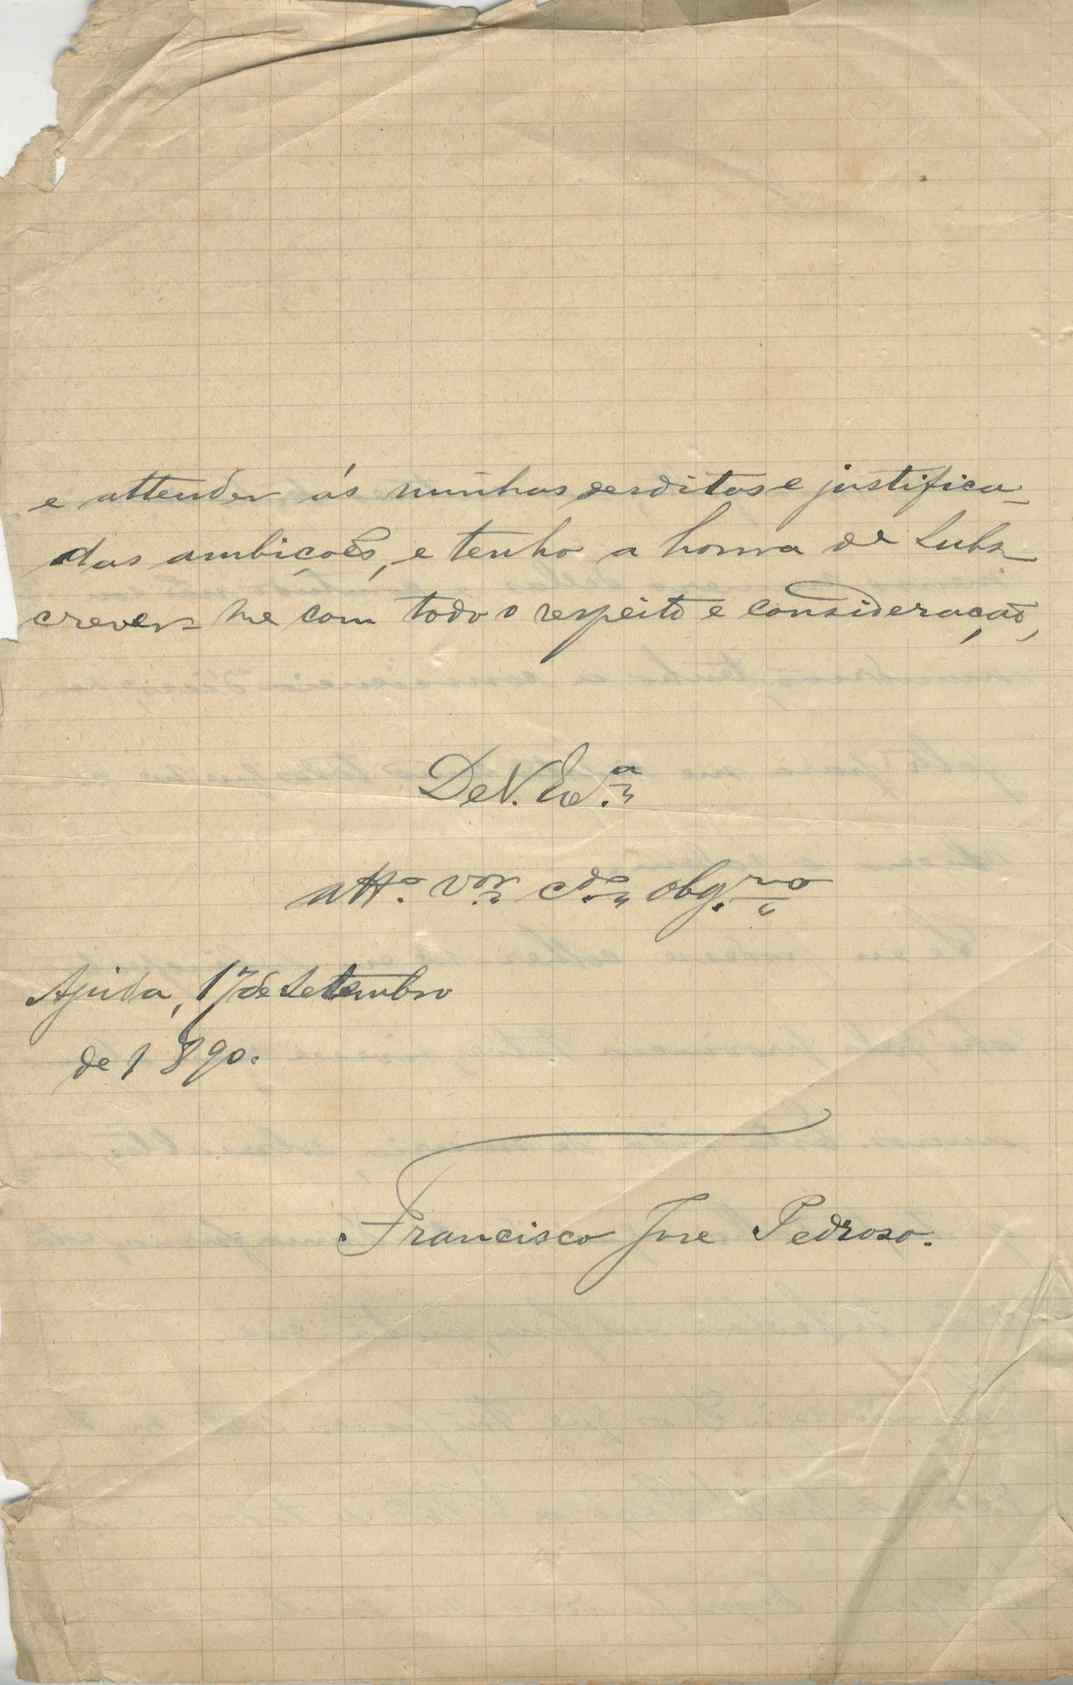 e attender ás minhas desditas e justifica-
das ambições, e tenho a honra de subs-
crever-me com todo o respeito e consideração,
De V. Ex.ª
att.º v.or c.do obg.mo
Ajuda, 17 de Setembro
de 1890.
Francisco José Pedroso.